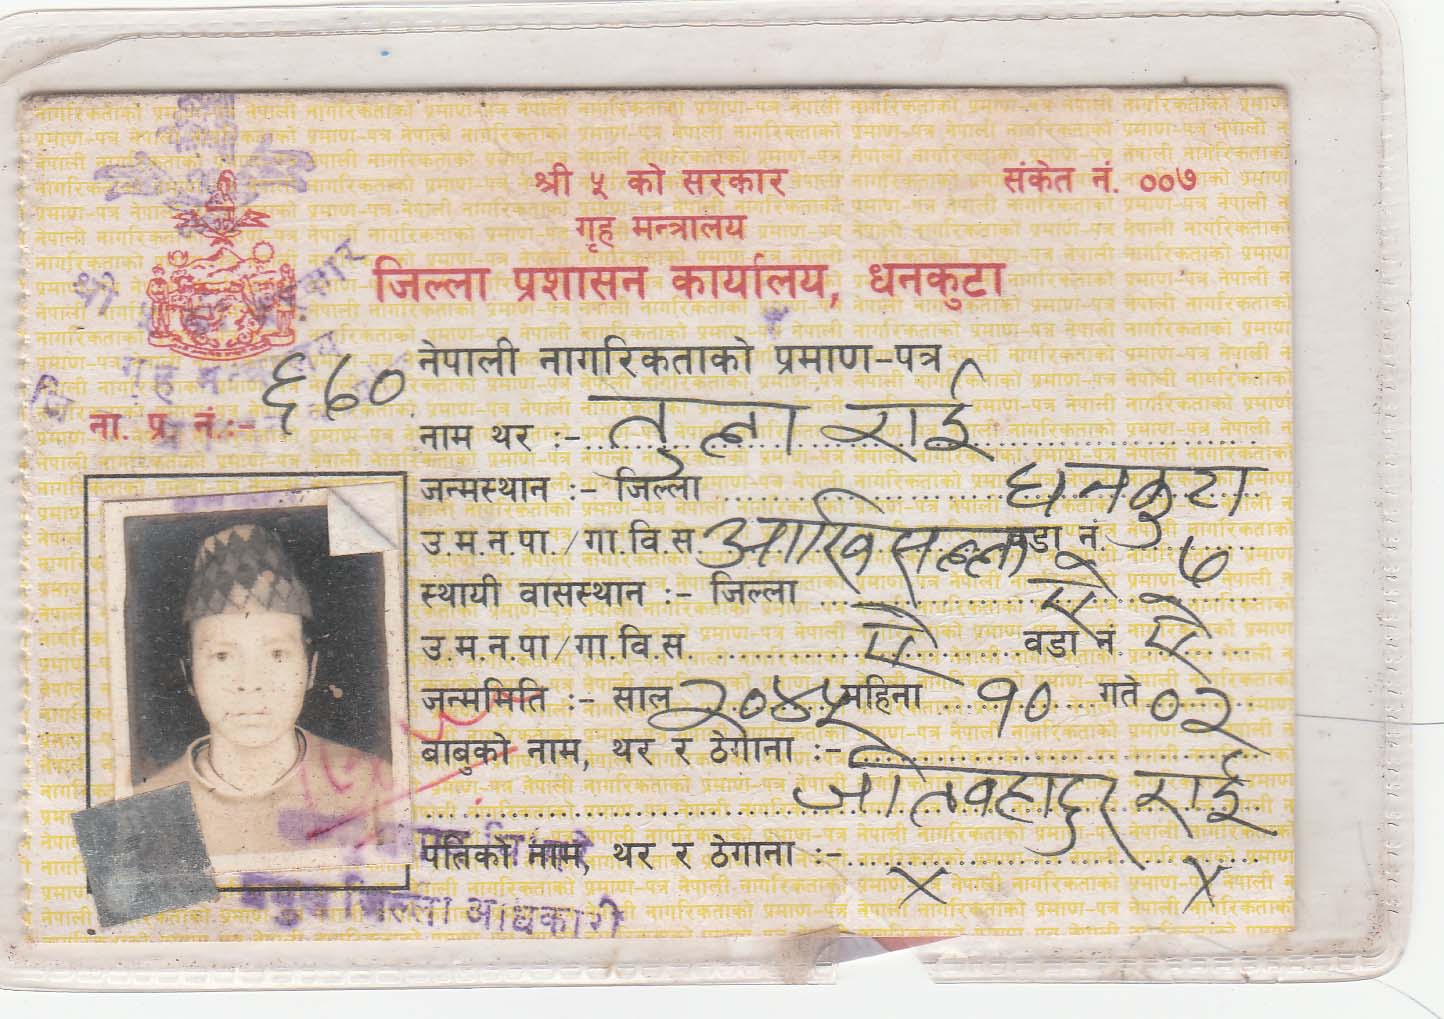 श्री ५ को सरकार
संकेत नं. ००७
गृह मन्त्रालय
जिल्ला प्रशासन कार्यालय, धनकुटा
नेपाली नागरिकताको प्रमाण-पत्र
ना. प्र. नं.:- ६७०
नाम थर :- तुला राई
जन्मस्थान :- जिल्ला धनकुटा
उ.म.न.पा./गा.वि.स. आखिसल्ला वडा नं. ७
स्थायी वासस्थान :- जिल्ला ऐ
उ.म.न.पा/गा.वि.स. ऐ वडा नं. ऐ
जन्ममिति :- साल २०४५ महिना १० गते ०२
बाबुको नाम, थर र ठेगाना :-
जीतवहादुर राई
पतिको नाम, थर र ठेगाना :- X X
प्रमुख जिल्ला अधिकारी